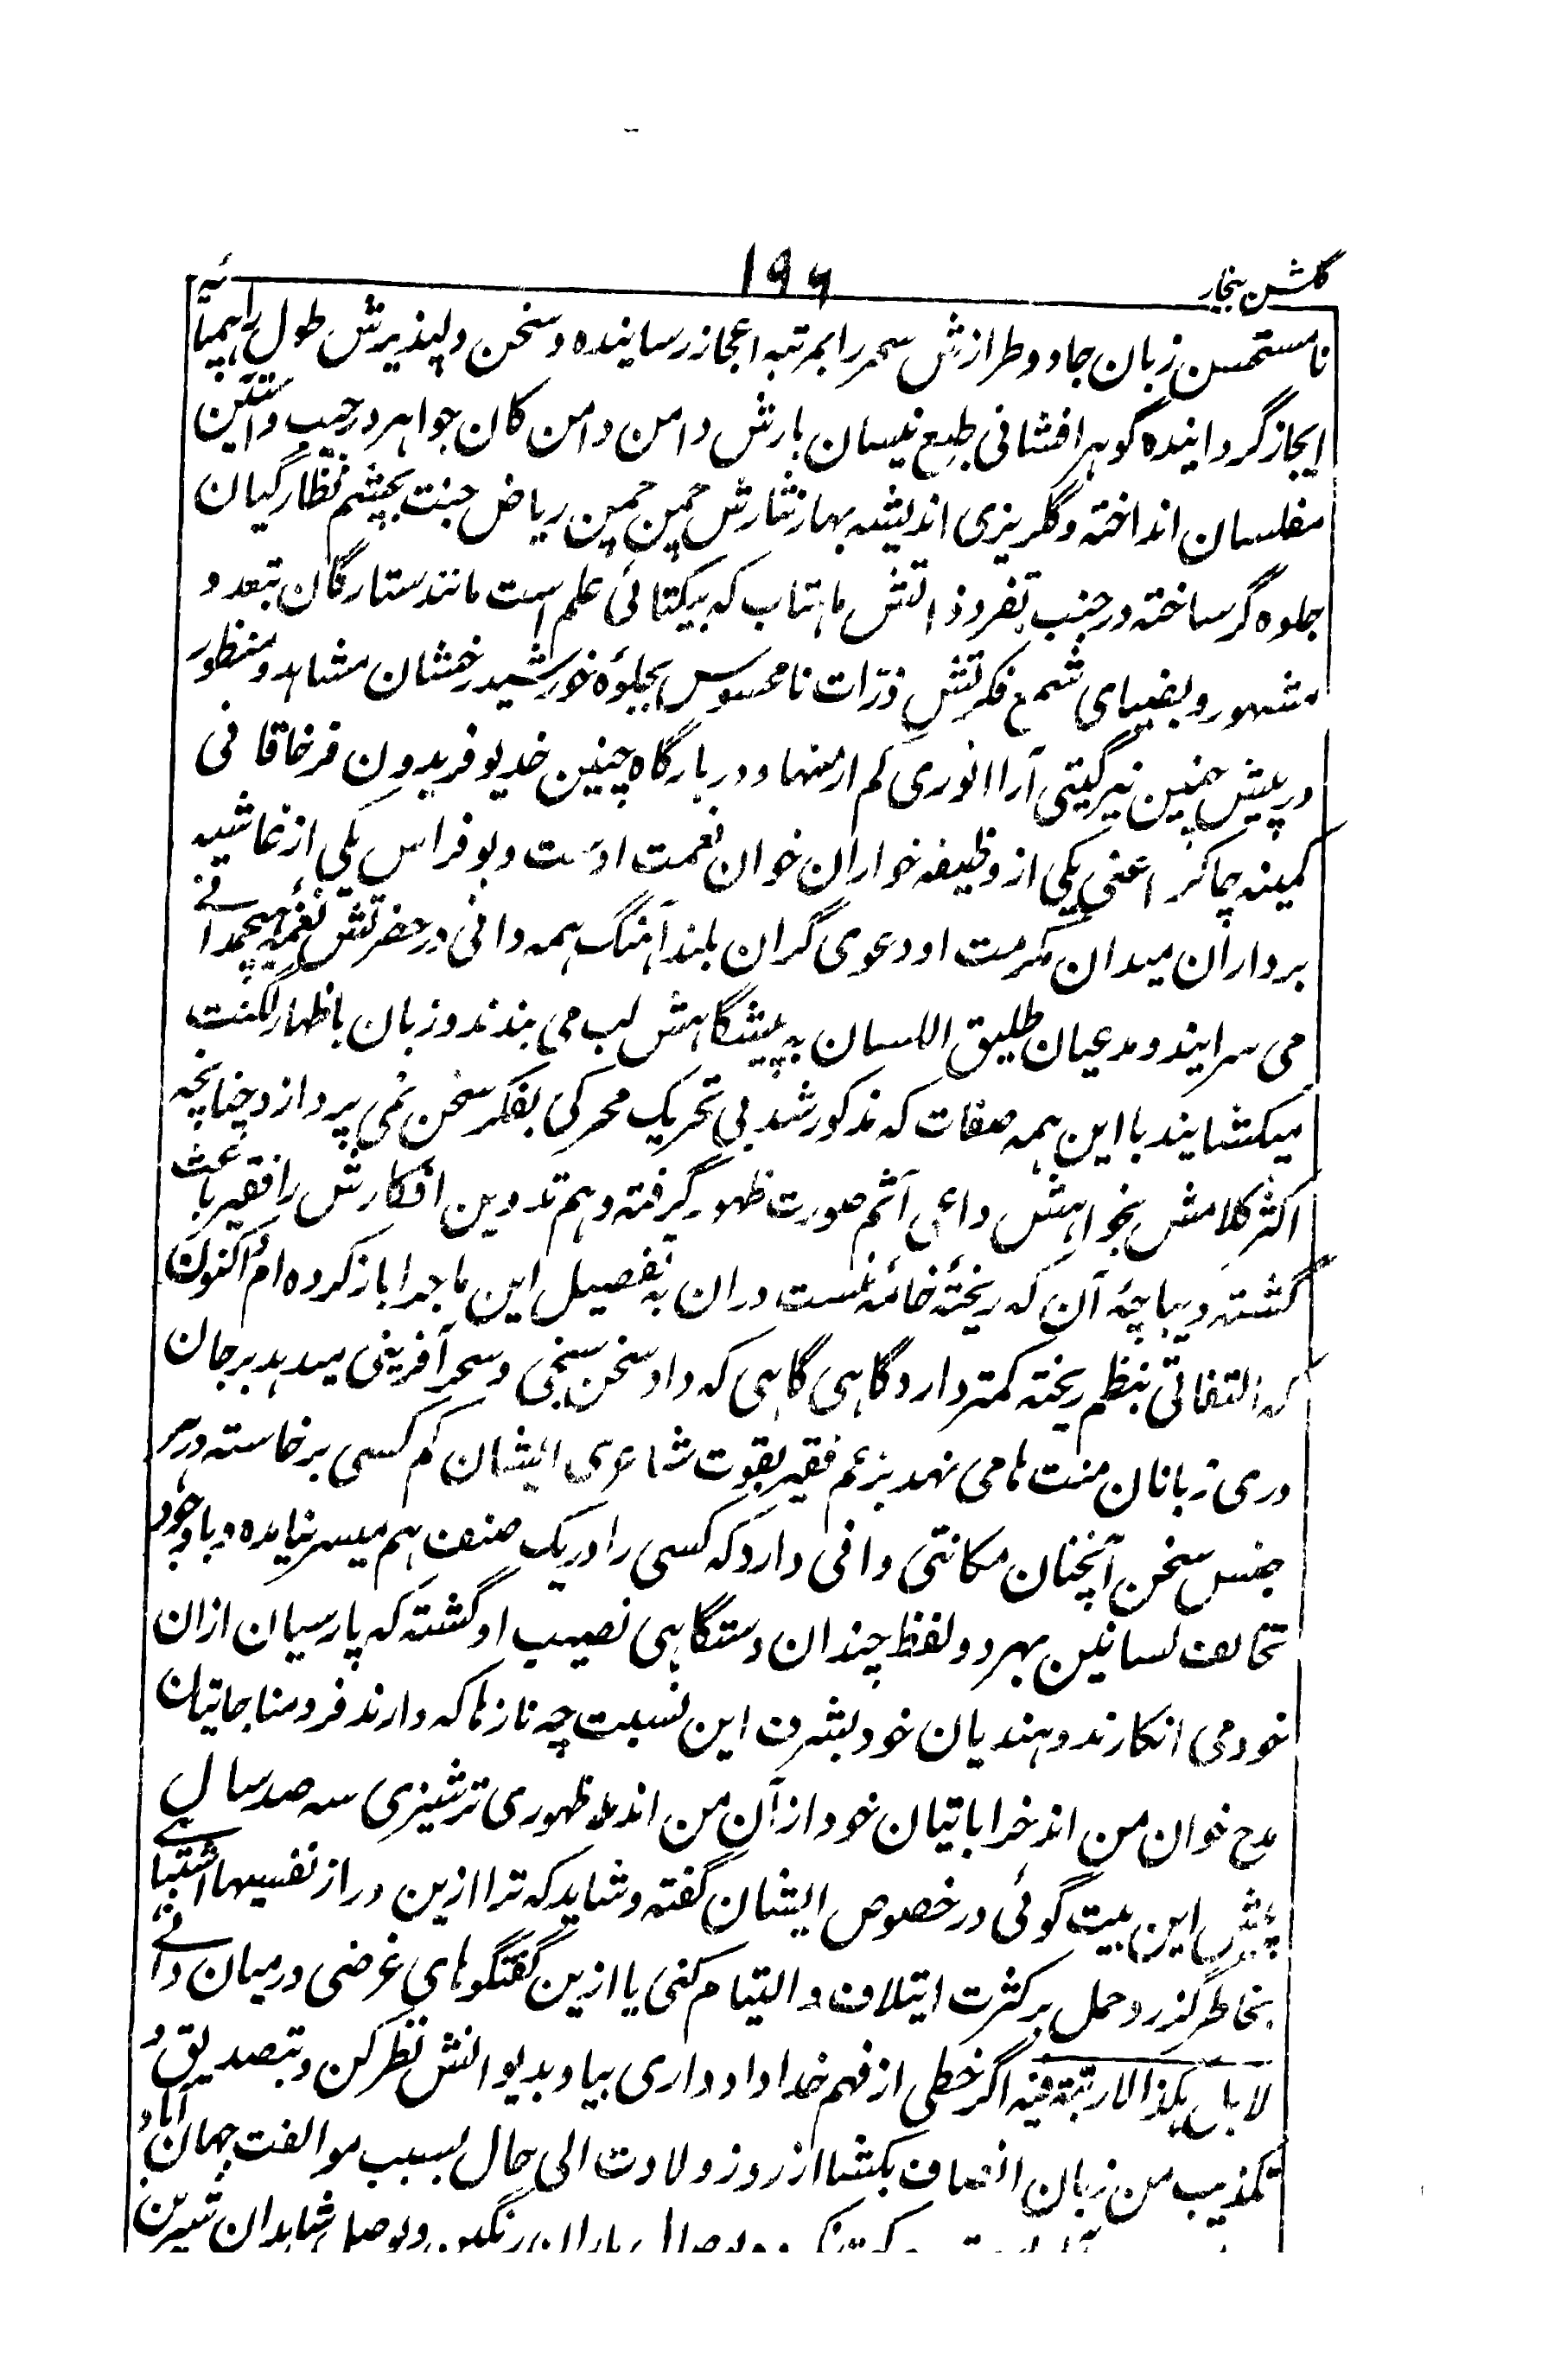 گلشن بیخار
۱۹۶
نامستحسن زبان جادو طرازش سحر را بمرتبه اعجاز رسانیده و سخن دلپذیرش طول را بپیرایۂ
ایجاز گردانیده گوہر افشانی طبع نیسان بارش دامن دامن کان جواہر در جیب و آستین
مفلسان انداخته و گلریزی اندیشه بہار نثارش چمن چمن ریاض جنت بچشم نظارگیان
جلوه گر ساخته در جنب تفرد ذاتش ماہتاب که بیکتائی علم است مانند ستارگان بتعدد
مشہور و بضیای شمع فکرتش ذرّات نامحسوس بجلوۂ خورشید رخشان مشاہد و منظور
در پیش چنین نیر گیتی آرا انوری کم از سہا و در بارگاه چنین خدیو فریدون فر خاقانی
کمینه چاکر اعنی یکی از وظیفه خواران خوان نعمت اوست و بوفراس یکی از غاشیه
برداران میدان مکرمت او دعوی گران بلند آہنگ ہمه دانی در حضرتش نغمۂ ہیچمدانی
می سرایند و مدعیان طلیق اللسان به پیشگاہش لب می بندند و زبان باظہار لکنت
میکشایند با این ہمه صفات که مذکور شد بی تحریک محرکی بفکر سخن نمی پردازد چنانچه
اکثر کلامش بخواہش داعی آثم صورت ظہور گرفته و ہم تدوین افکارش را فقیر باعث
گشته دیباچۂ آن که ریختۂ خامۂ منست دران به تفصیل این ماجرا باز کرده ام اکنون
که التفاتی بنظم ریخته کمتر دارد گاہی گاہی که داد سخن سنجی و سحر آفرینی میدہد بر جان
دری زبانان منت ها می نہد بزعم فقیر بقوت شاعری ایشان کم کسی برخاسته در ہر
جنس سخن آنچنان مکانتی وافی دارد که کسی را در یک صنف ہم میسر نیامده و با وجود
تخالف لسانین بہر دو لفظ چندان دستگاہی نصیب او گشته که پارسیان از ان
خود می انکارند و ہندیان خود بشرف این نسبت چه نازها که دارند فرد مناجاتیان
مدح خوان من اند خراباتیان خود از آن من اند ظہوری ترشیزی سه صد سال
پیش این بیت گوئی در خصوص ایشان گفته و شاید که ترا ازین دراز نفسیہا اشتباہی
بخاطر گذرد و حمل بر کثرت ایتلاف و التیام کنی یا ازین گفتگوهای غرضی درمیان دانی
لا بل ہکذا لا ریبة فیه اگر خطی از فہم خداداد داری بیا و بدیوانش نظر کن و بتصدیق و
تکذیب من زبان انصاف بکشا از روز ولادت الی حال بسبب موالفت جہان آباد
رنگین و بوصل شاہدان شیرین